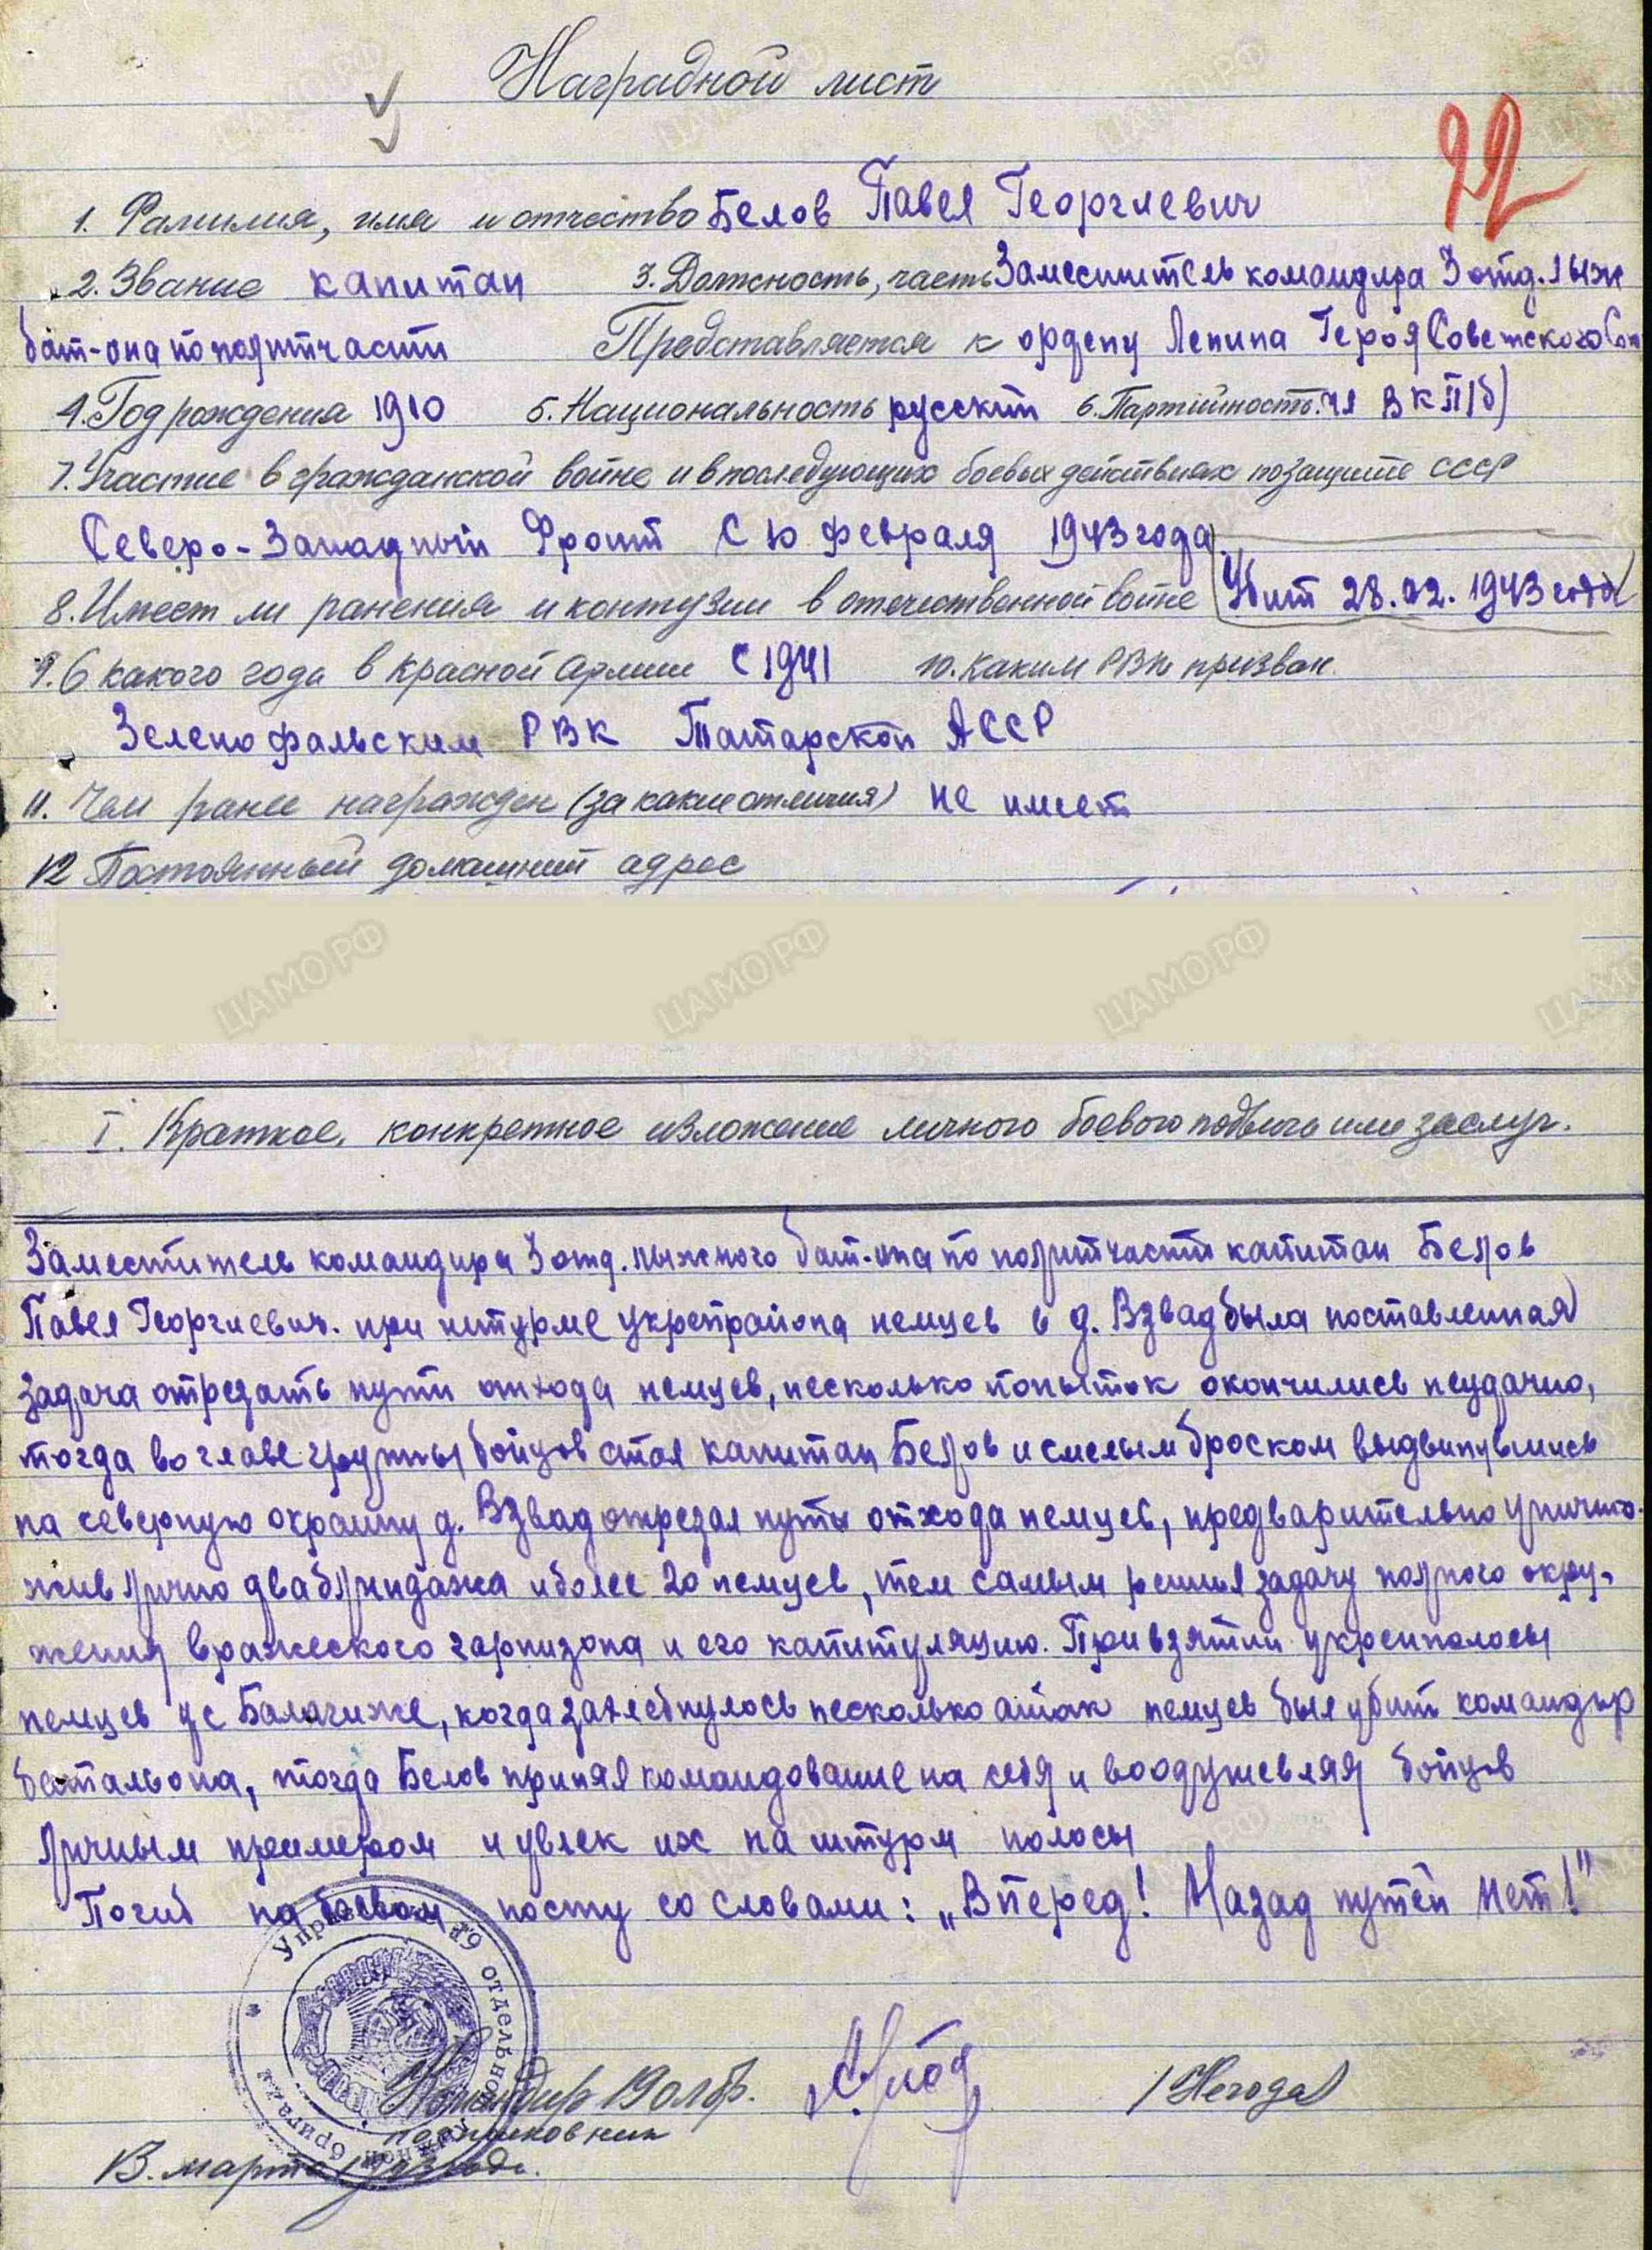 Наградной лист
92
1. Фамилия, имя и отчество Белов Павел Георгиевич
2. Звание капитан 3. Должность, часть Заместитель командира 3 отд. лыж
бат-она по политчасти Представляется к ордену Ленина Героя Советского Сою
4. Год рождения 1910 5. Национальность русский 6. Партийность чл ВКП(б)
7. Участие в гражданской войне и в последующих боевых действиях по защите СССР
Северо-Западный Фронт С 10 февраля 1943 года
8. Имеет ли ранения и контузии в отечественной войне Убит 28.02.1943 года
9. С какого года в Красной Армии С 1941 10. Каким РВК призван
Зеленофальским РВК Татарской АССР
11. Чем ранее награжден (за какие отличия) не имеет
12 Постоянный домашний адрес
I. Краткое, конкретное изложение личного боевого подвига или заслуг.
Заместитель командира 3 отд. лыжного бат-она по политчасти капитан Белов
Павел Георгиевич. при штурме укрепрайона немцев в д. Взвад была поставленная
задача отрезать пути отхода немцев, несколько попыток окончились неудачно,
тогда во главе группы бойцов стал капитан Белов и смелым броском выдвинувшись
на северную окраину д. Взвад отрезал путь отхода немцев, предварительно уничто-
жив лично два блиндажа и более 20 немцев, тем самым решил задачу полного окру-
жения вражеского гарнизона и его капитуляцию. При взятии укрепполосы
немцев у с Балагиже, когда захлебнулось несколько атак немцев был убит командир
батальона, тогда Белов принял командование на себя и воодушевляя бойцов
личным примером и увлек их на штурм полосы
Погиб на боевом посту со словами: „Вперед! Назад путей нет!"
Управление 19 отдельной лыжной бригады
Командир 19 олбр. /Негода/
полковник
13. марта 1943 года.
ЦАМО РФ